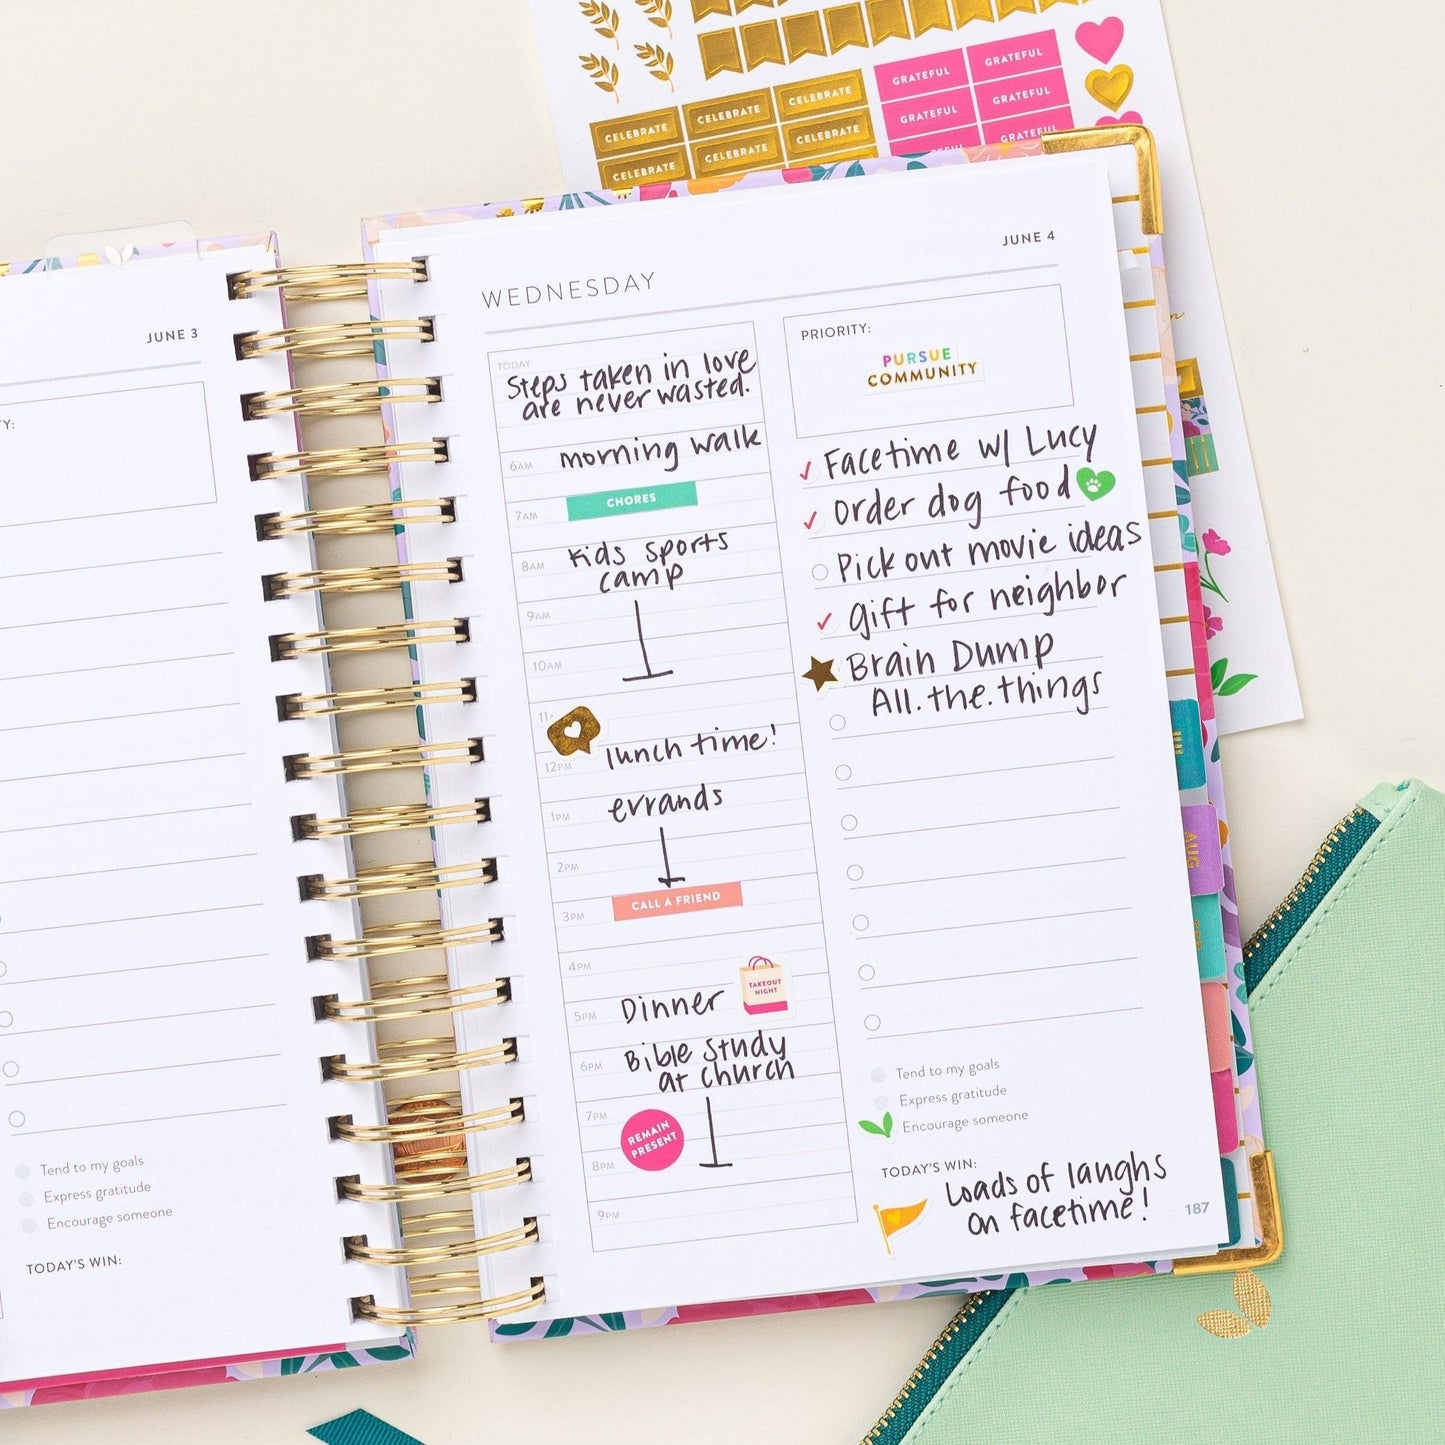 CELEBRATE
CELEBRATE
CELEBRATE
CELEBRATE
CELEBRATE
CELEBRATE
GRATEFUL
GRATEFUL
GRATEFUL
GRATEFUL
GRATEFUL
JUNE 3
Tend to my goals
Express gratitude
Encourage someone
TODAY'S WIN:
WEDNESDAY
JUNE 4
TODAY
Steps taken in love
are never wasted.
6AM morning walk
7AM CHORES
8AM Kids sports
camp
9AM
10AM
11
12PM lunch time!
1PM errands
2PM
3PM CALL A FRIEND
4PM
5PM Dinner TAKEOUT
NIGHT
6PM Bible study
at church
7PM
REMAIN
PRESENT
8PM
9PM
PRIORITY:
PURSUE
COMMUNITY
Facetime w/ Lucy
Order dog food
Pick out movie ideas
gift for neighbor
Brain Dump
All.the.things
Tend to my goals
Express gratitude
Encourage someone
TODAY'S WIN:
Loads of laughs
on facetime!
187
AUG